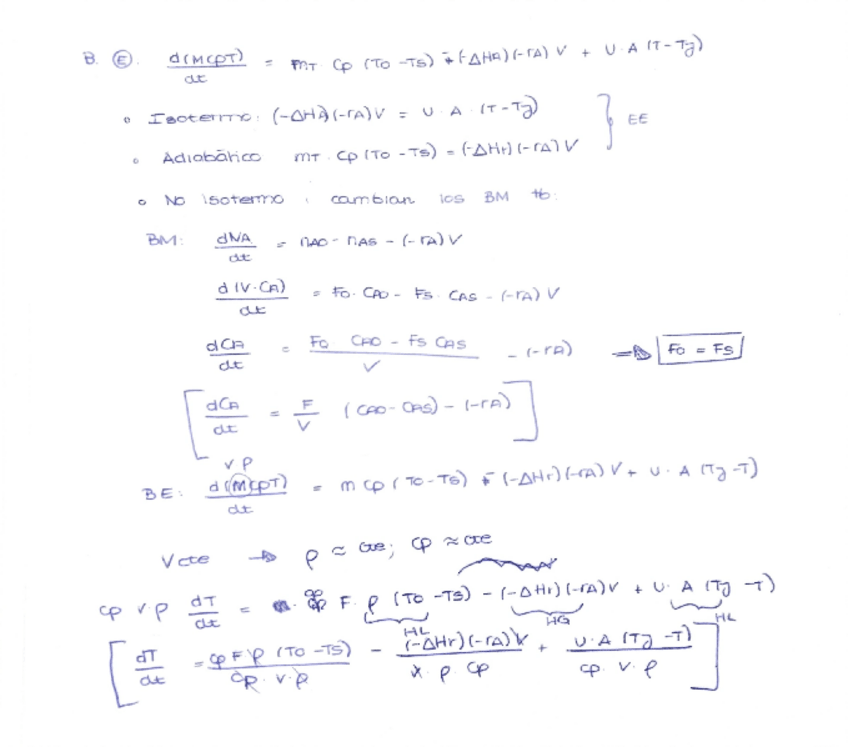 B. Ⓔ. d(MCpT)/dt = mT Cp (To - Ts) + (-ΔHR)(-rA) V + U·A (T - Tj)
• Isotermo: (-ΔHA)(-rA) V = U·A·(T - Tj)
} EE
• Adiabático mT·Cp (To - Ts) = (-ΔHr)(-rA) V
• No isotermo: cambian los BM tb:
BM: dNA/dt = nAO - nAS - (-rA) V
d(V·CA)/dt = Fo·CAO - Fs·CAS - (-rA) V
dCA/dt = (Fo CAO - Fs CAS)/V - (-rA) → Fo = Fs
[dCA/dt = F/V (CAO - CAS) - (-rA)]
Vρ
BE: d(MCpT)/dt = m cp (To - Ts) - (-ΔHr)(-rA) V + U·A (Tj - T)
Vcte → ρ ≈ cte; cp ≈ cte
cp V·ρ dT/dt = cp F·ρ (To - Ts) - (-ΔHr)(-rA) V + U·A (Tj - T)
HL HG HL
[dT/dt = cp F ρ (To - Ts)/(cp·V·ρ) - (-ΔHr)(-rA) V/(V·ρ cp) + U·A (Tj - T)/(cp·V·ρ)]